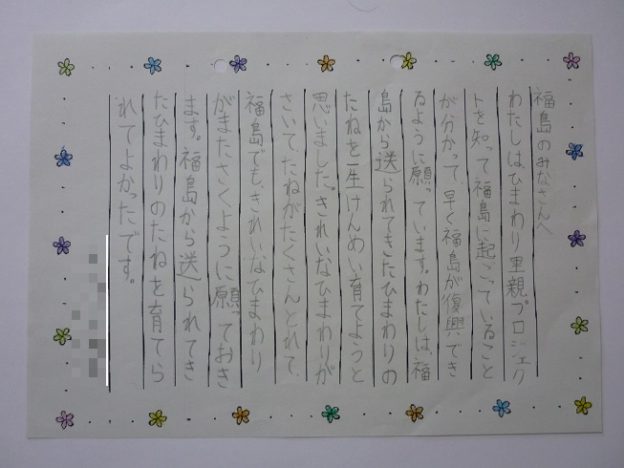 福島のみなさんへ
わたしはひまわり里親プロジェク
トを知って福島に起こっていること
が分かって早く福島が復興でき
るように願っています。わたしは福
島から送られてきたひまわりの
たねを一生けんめい育てようと
思いました。きれいなひまわりが
さいてたねがたくさんとれて、
福島でも、きれいなひまわり
がまたさくように願っておき
ます。福島から送られてき
たひまわりのたねを育てら
れてよかったです。